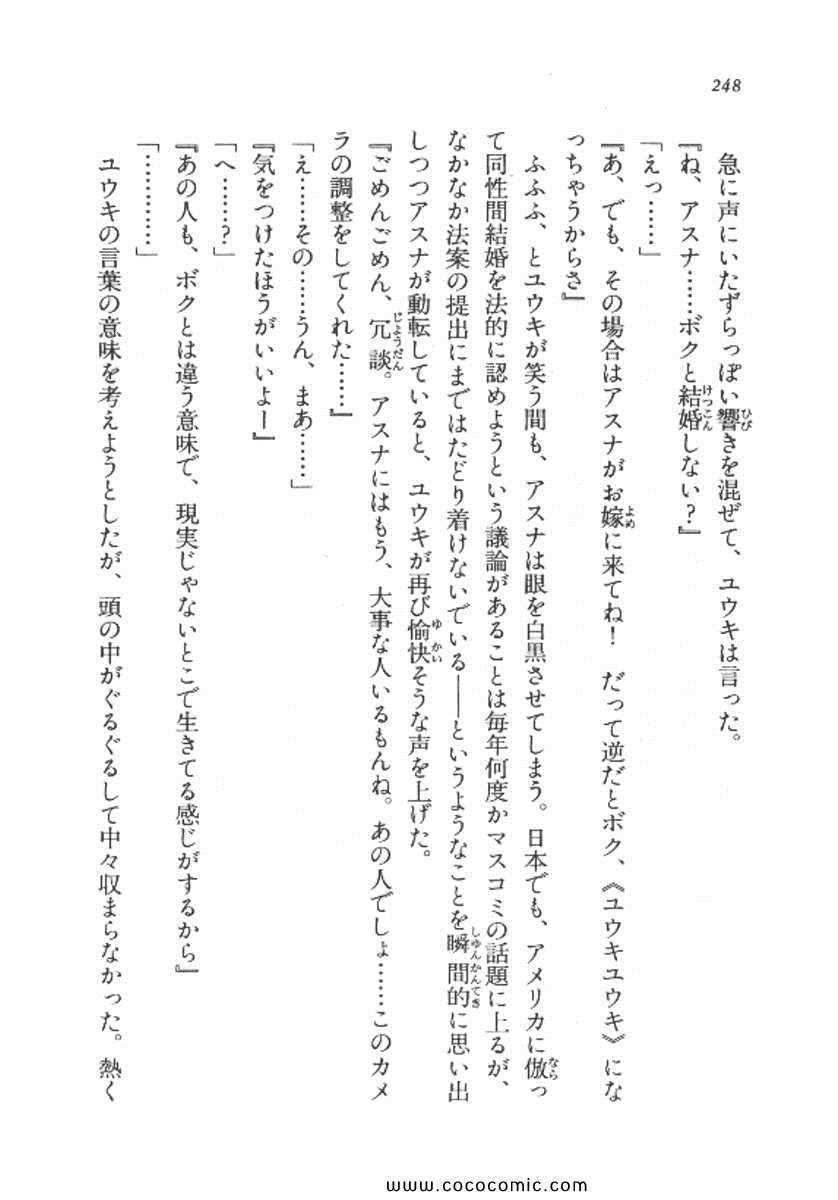 248
急に声にいたずらっぽい響きを混ぜて、ユウキは言った。
『ね、アスナ……ボクと結婚しない？』
「えっ……」
『あ、でも、その場合はアスナがお嫁に来てね！　だって逆だとボク、《ユウキユウキ》にな
っちゃうからさ』
ふふふ、とユウキが笑う間も、アスナは眼を白黒させてしまう。日本でも、アメリカに倣っ
て同性間結婚を法的に認めようという議論があることは毎年何度かマスコミの話題に上るが、
なかなか法案の提出にまではたどり着けないでいる――というようなことを瞬間的に思い出
しつつアスナが動転していると、ユウキが再び愉快そうな声を上げた。
『ごめんごめん、冗談。アスナにはもう、大事な人いるもんね。あの人でしょ……このカメ
ラの調整をしてくれた……』
「え……その……うん、まあ……」
『気をつけたほうがいいよー』
「へ……？」
『あの人も、ボクとは違う意味で、現実じゃないとこで生きてる感じがするから』
「…………」
ユウキの言葉の意味を考えようとしたが、頭の中がぐるぐるして中々収まらなかった。熱く
www.cococomic.com